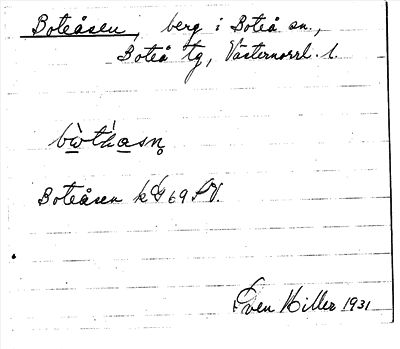 Boteåsen, berg i Boteå sn.,
Boteå tg, Västernorrl. l.
bẁth́asn̥
Boteåsen k 69 SV.
Sven Hiller 1931